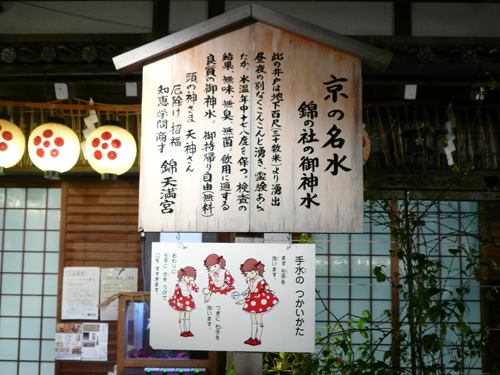 京の名水
錦の社の御神水
此の井戸は地下百尺(三十数米)より湧出
昼夜の別なくこんこんと湧き、霊験あら
たか、水温年中十七八度を保つ。検査の
結果、無味、無臭、無菌。飲用に適する
良質の御神水。御持帰り自由(無料)
頭の神さま 天神さん
厄除け 招福
知恵 学問 商才 錦天満宮
手水の つかいかた
まず 左手を
洗います。
つぎに 右手を
洗います。
おわりに
左手に 水を うけて
口を すすぎます。